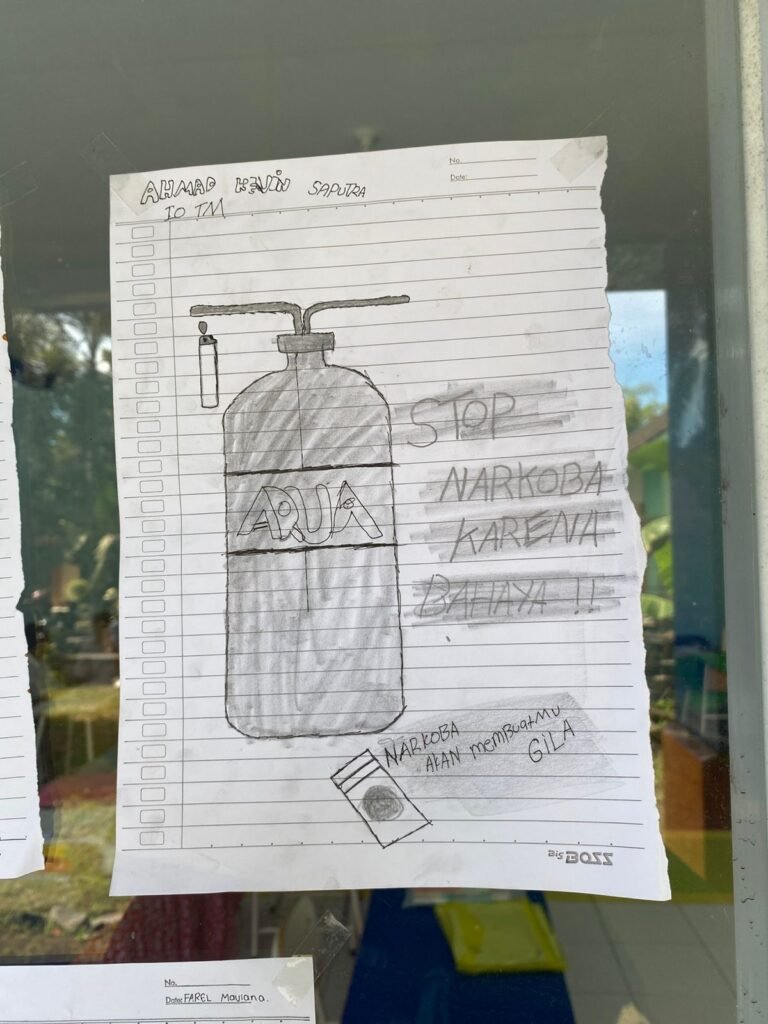 No.
Date:
AHMAD KEVIN SAPUTRA
10 TM
AQUA
STOP
NARKOBA
KARENA
BAHAYA !!
NARKOBA
AKAN memBuatMU
GILA
Big BOSS
No.
Date: FAREL Maulana.